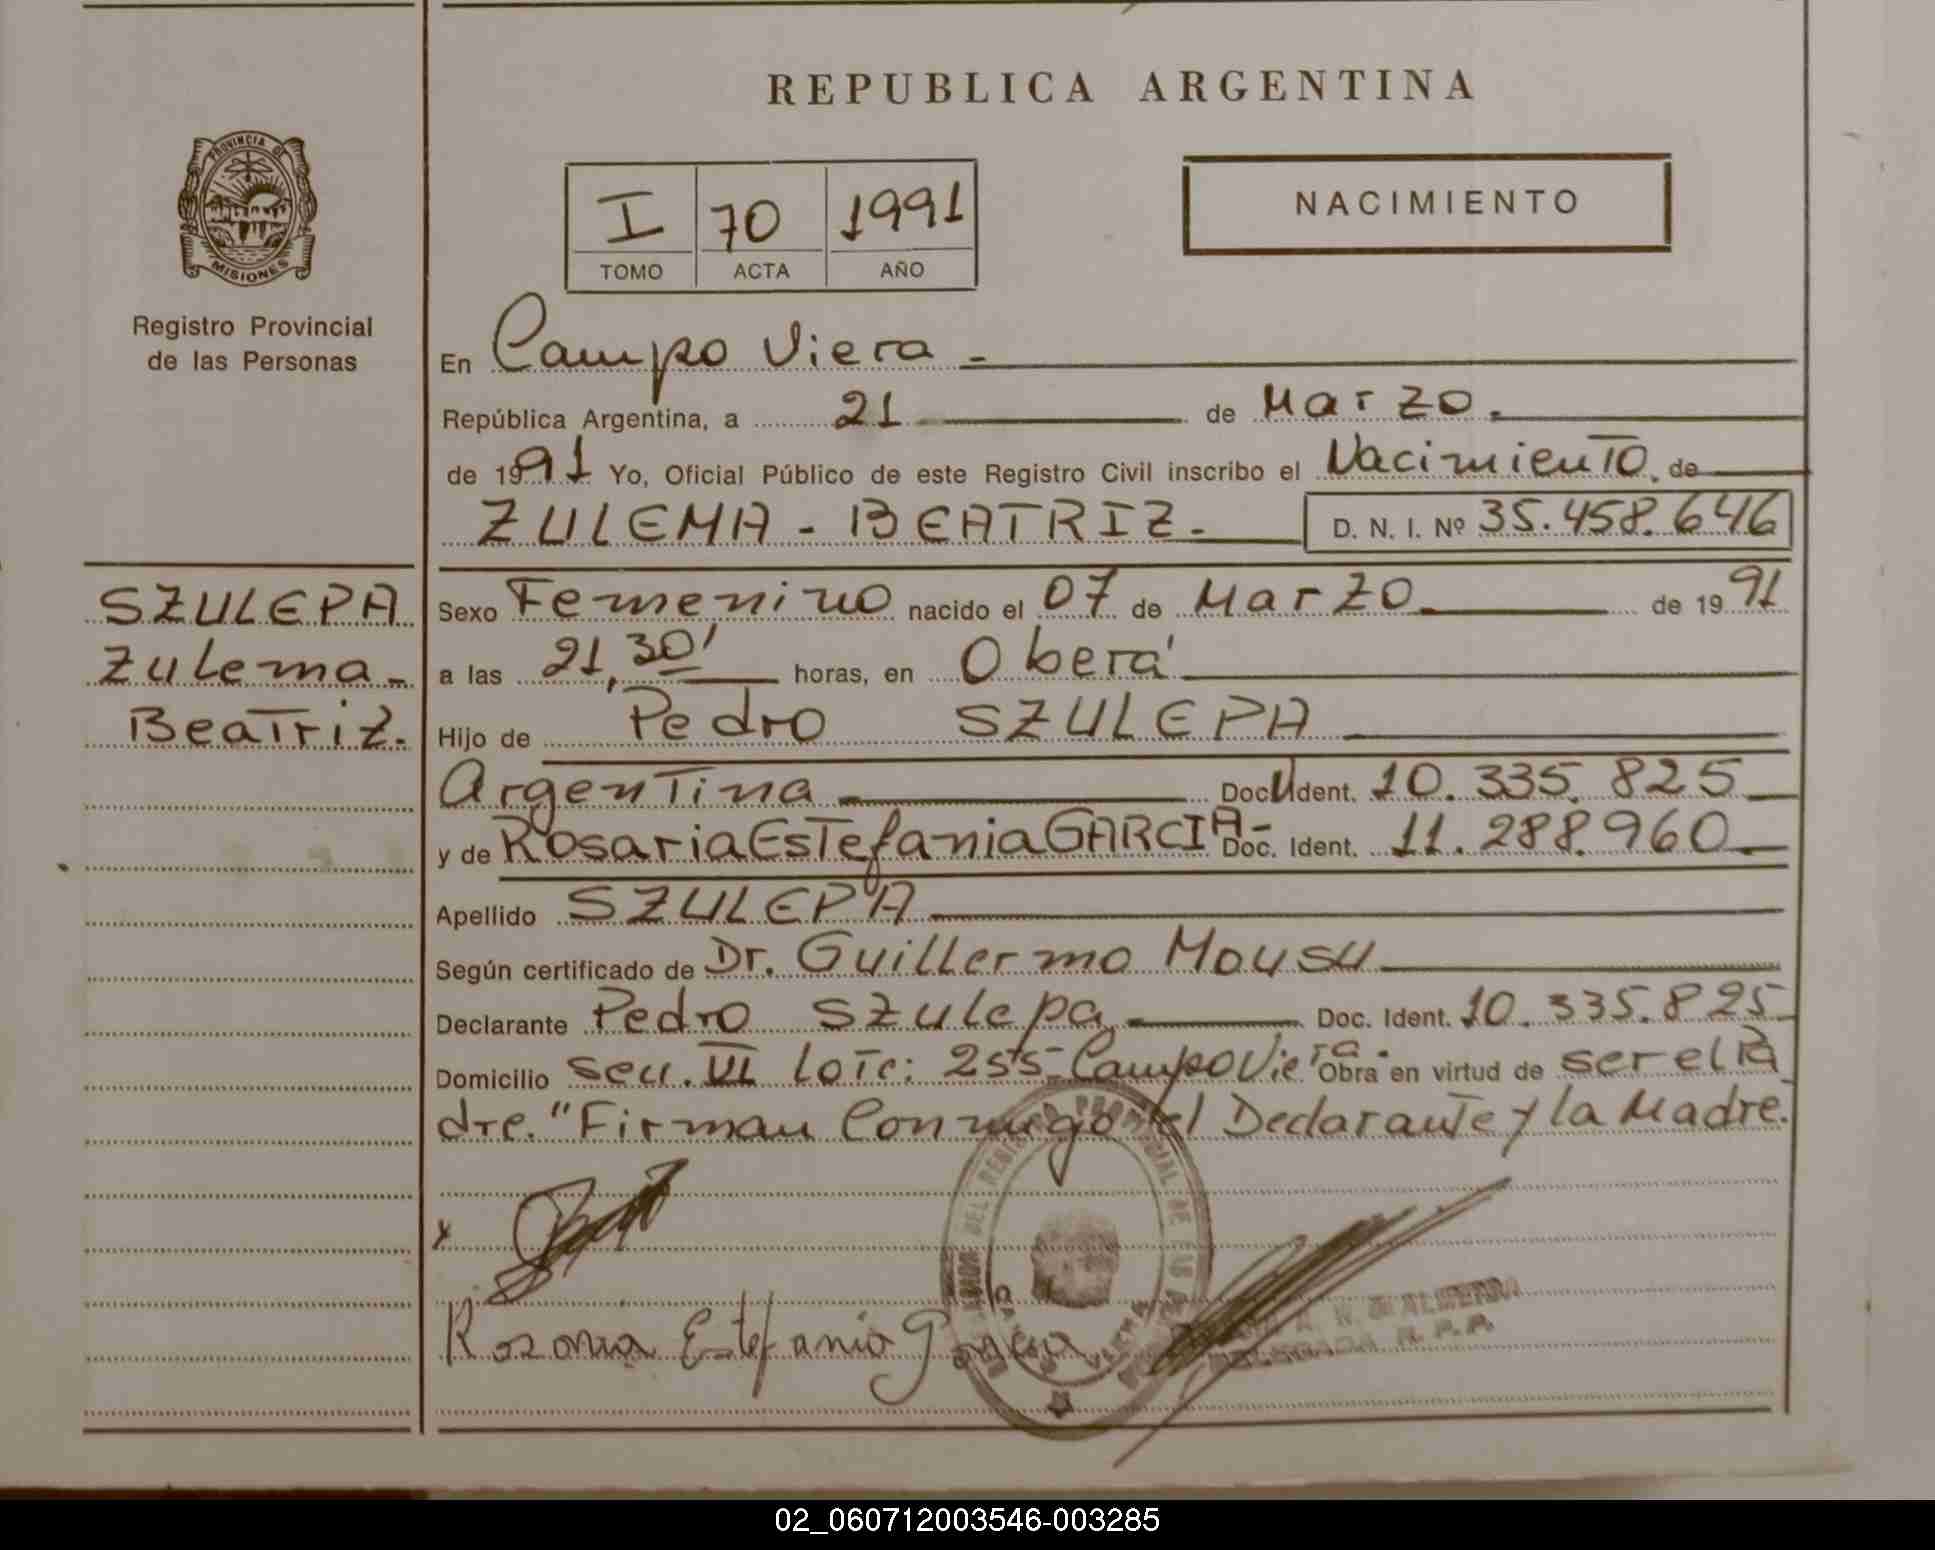 REPUBLICA ARGENTINA
PROVINCIA DE
MISIONES
Registro Provincial
de las Personas
I 70 1991
TOMO ACTA AÑO
NACIMIENTO
En Campo Viera -
República Argentina, a 21 de Marzo.
de 1991 Yo, Oficial Público de este Registro Civil inscribo el Nacimiento de
ZULEMA - BEATRIZ. D. N. I. Nº 35.458.646
SZULEPA
Zulema -
Beatriz.
Sexo Femenino nacido el 07 de Marzo de 1991
a las 21,30' horas, en Oberá
Hijo de Pedro SZULEPA
Argentina Doc U Ident. 10.335.825
y de Rosaria Estefania GARCIA - Doc. Ident. 11.288.960
Apellido SZULEPA
Según certificado de Dr. Guillermo Mousu
Declarante Pedro Szulepa Doc. Ident. 10.335.825
Domicilio Secc. VI Lote: 255 - Campo Viera. Obra en virtud de ser el Pa
dre. "Firman Conmigo el Declarante y la Madre.
x
Rosaria Estefania Garcia
02_060712003546-003285